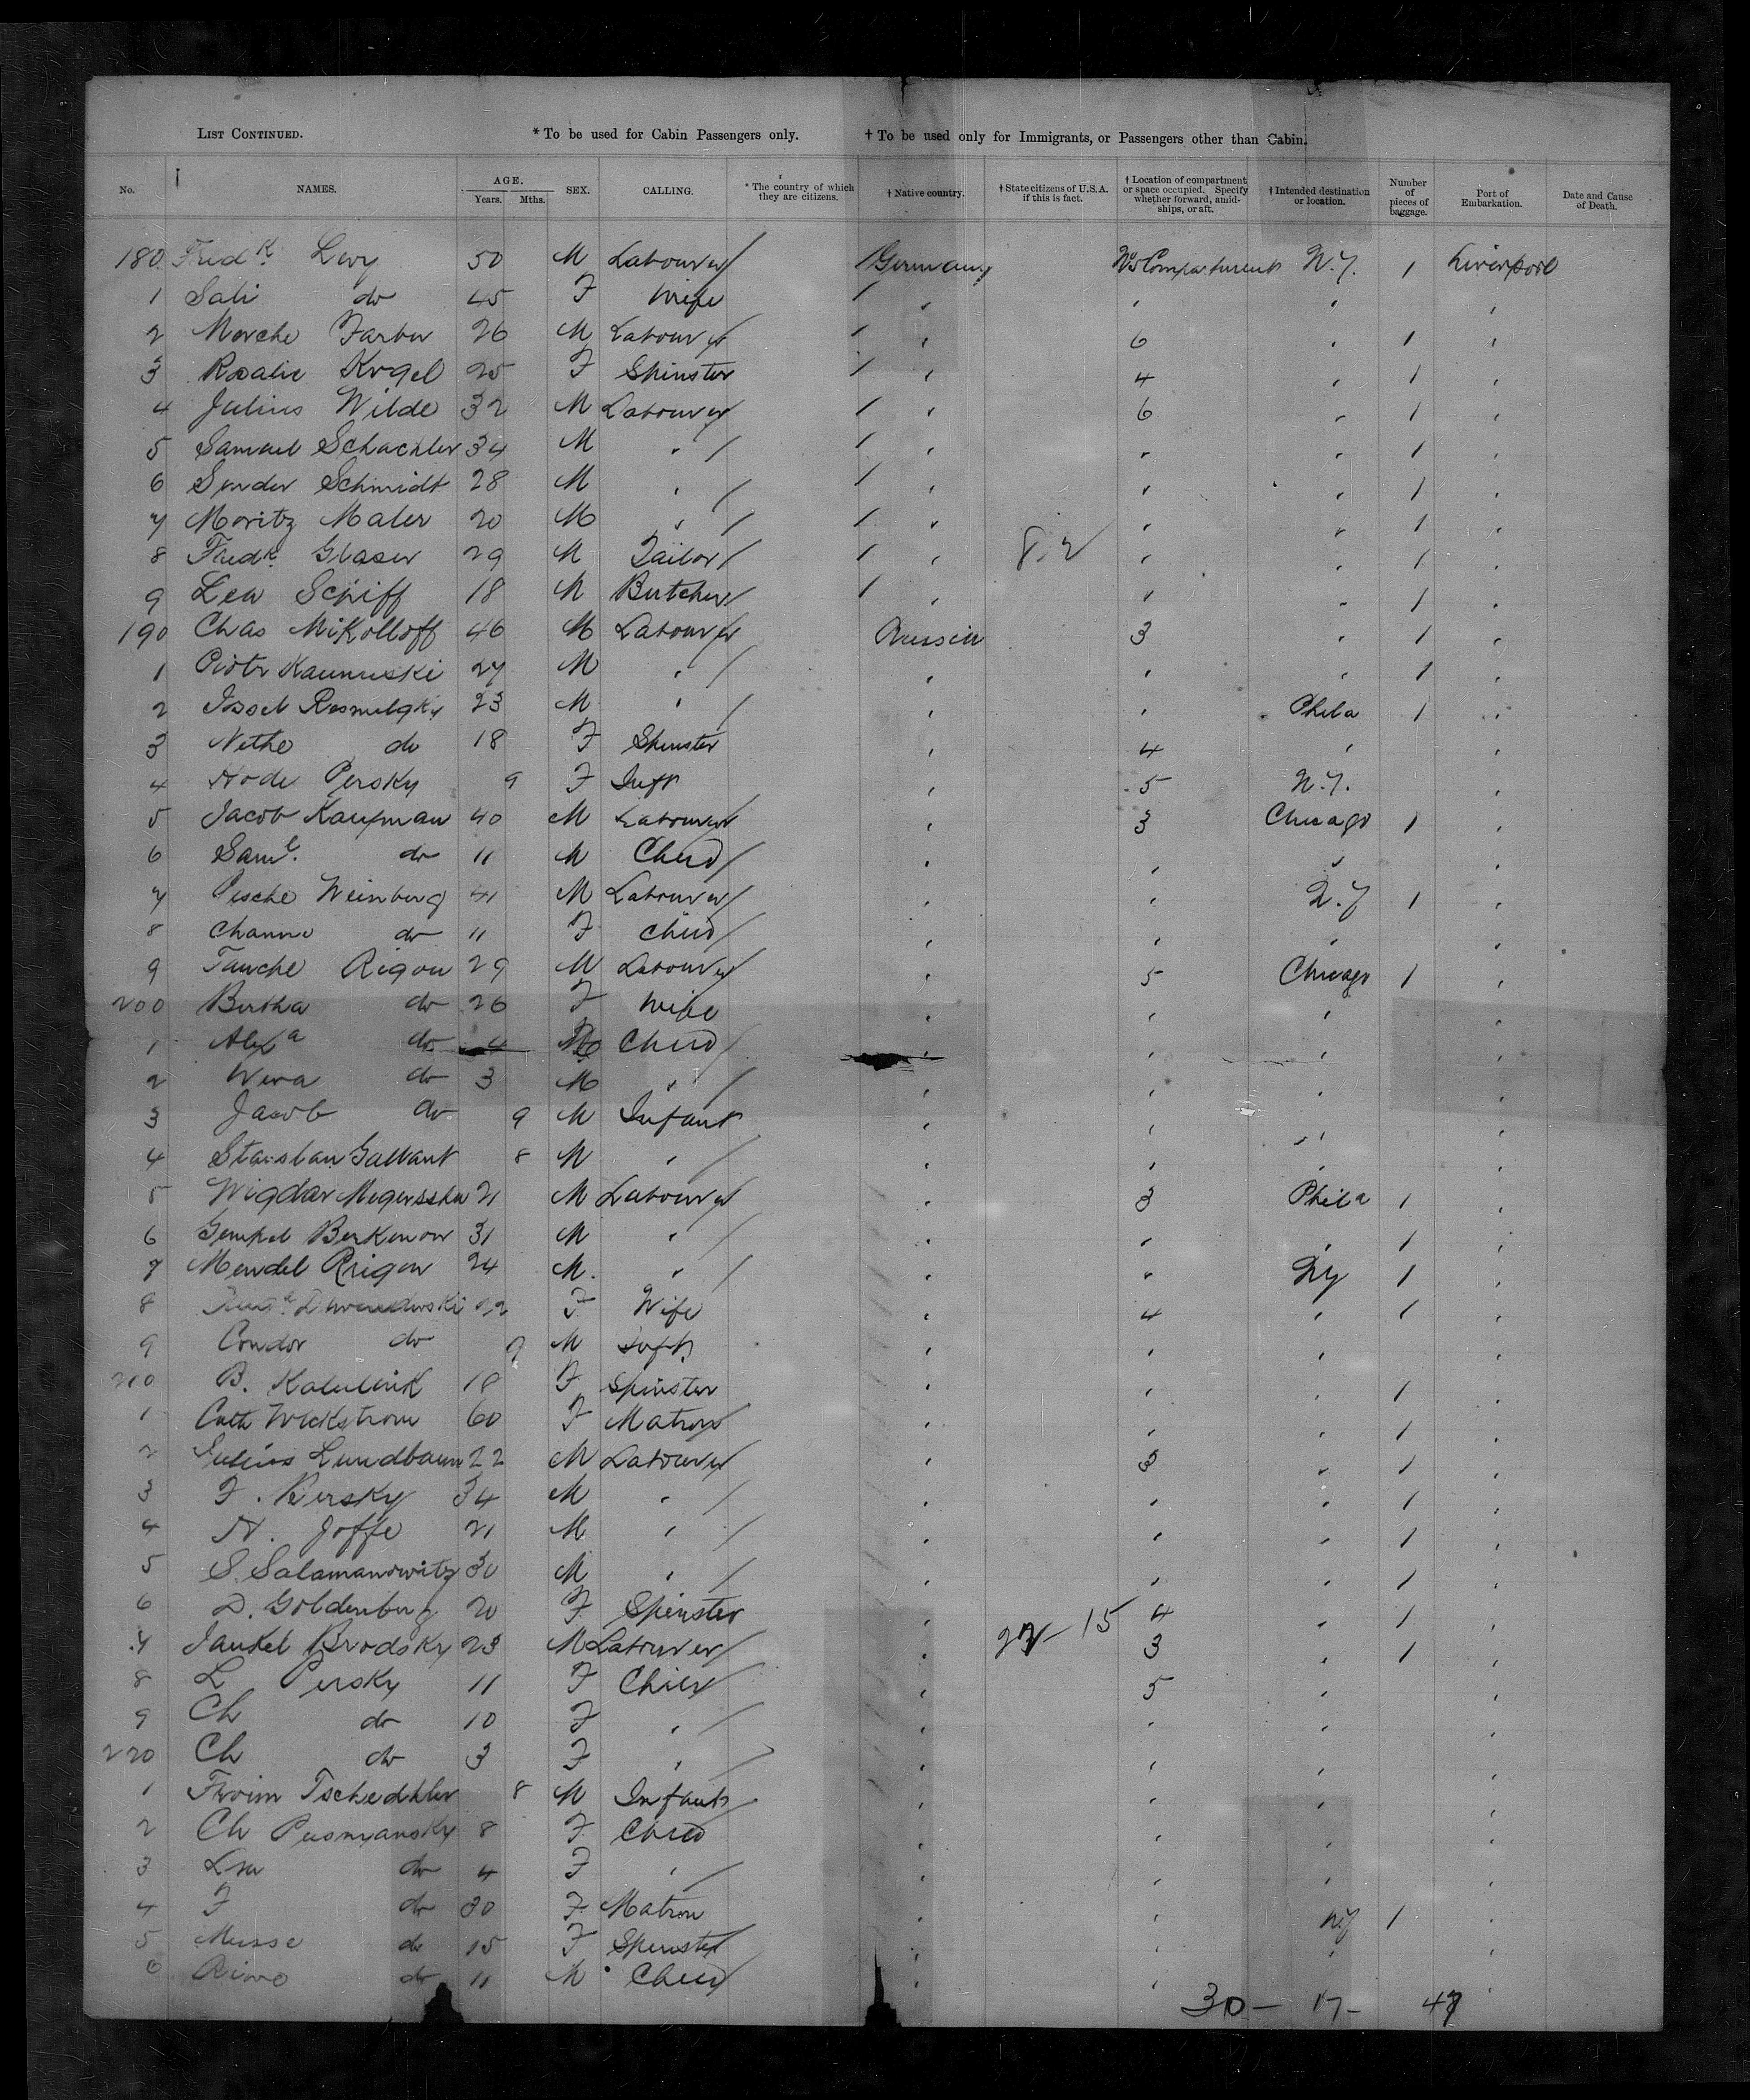 LIST CONTINUED. * To be used for Cabin Passengers only. † To be used only for Immigrants, or Passengers other than Cabin.
No. NAMES. AGE. Years. Mths. SEX. CALLING. * The country of which they are citizens. † Native country. † State citizens of U.S.A. if this is fact. † Location of compartment or space occupied. Specify whether forward, amidships, or aft. † Intended destination or location. Number of pieces of baggage. Port of Embarkation. Date and Cause of Death.
180 Fredk. Levy 50 M Labourer / Germany Compartment N.Y. 1 Liverpool
1 Sali do 45 F Wife / " " " "
2 Morche Farber 26 M Labourer / " 6 " 1 "
3 Rosalie Kugel 25 F Spinster / " 4 " 1 "
4 Julius Wilde 32 M Labourer / " 6 " 1 "
5 Samuel Schachler 34 M " / / " " " 1 "
6 Sender Schmidt 28 M " / / " " " 1 "
7 Moritz Maler 20 M " / / " " " 1 "
8 Fredk. Glaser 29 M Tailor / / " 8.2 " " 1 "
9 Lew Schiff 18 M Butcher / / " " " 1 "
190 Chas Mikolloff 46 M Labourer Russia 3 " 1 "
1 Piotr 27 M " / " " " 1 "
2 Issel 23 M " / " " Phila 1 "
3 Nethe do 18 F Spinster " 4 " "
4 Hode Persky 9 F Inft " 5 N.Y. "
5 Jacob Kaufman 40 M Labourer " 3 Chicago 1 "
6 Saml. do 11 M Child / " " " "
7 Pesche Weinberg 41 M Labourer " " N.Y 1 "
8 Channe do 11 F Child / " " " "
9 Tanche Rigou 29 M Labourer " 5 Chicago 1 "
200 Bertha do 26 F Wife " " " "
1 Alexa do 4 Child / " " " "
2 Wera do 3 M " / " " " "
3 Jacob do 9 M Infant " " " "
4 Gallant 8 M " / " " " "
5 Wigdor 21 M Labourer " 3 Phila 1 "
6 Berkenow 31 M " / " " " 1 "
7 Mendel Rrigow 24 M. " / " " NY 1 "
8 F Wife " 4 " 1 "
9 Condor do 9 M Inft. " " " "
210 B. 18 F Spinster " " " 1 "
1 Cath Wickstrom 60 F Matron " " " 1 "
2 Julius Lundbaum 22 M Labourer " 3 " 1 "
3 F. Persky 34 M " / " " " 1 "
4 H. Joffe 21 M " / " " " 1 "
5 S. Salamanowitz 30 M " / " " " 1 "
6 D. Goldenberg 20 F Spinster " 22 - 15 4 " 1 "
7 Jankel Brodsky 23 M Labourer / " 3 " 1 "
8 L Persky 11 F Child " 5 " "
9 Ch do 10 F " / " " " "
220 Ch do 3 F " / " " " "
1 Froim 8 M Infant " " " "
2 Ch 8 F Child " " " "
3 Lea do 4 F " / " " " "
4 F do 30 F Matron " " NY 1 "
5 Musse do 15 F Spinster " " " "
6 do 11 M Child " " "
30 - 17 - 47